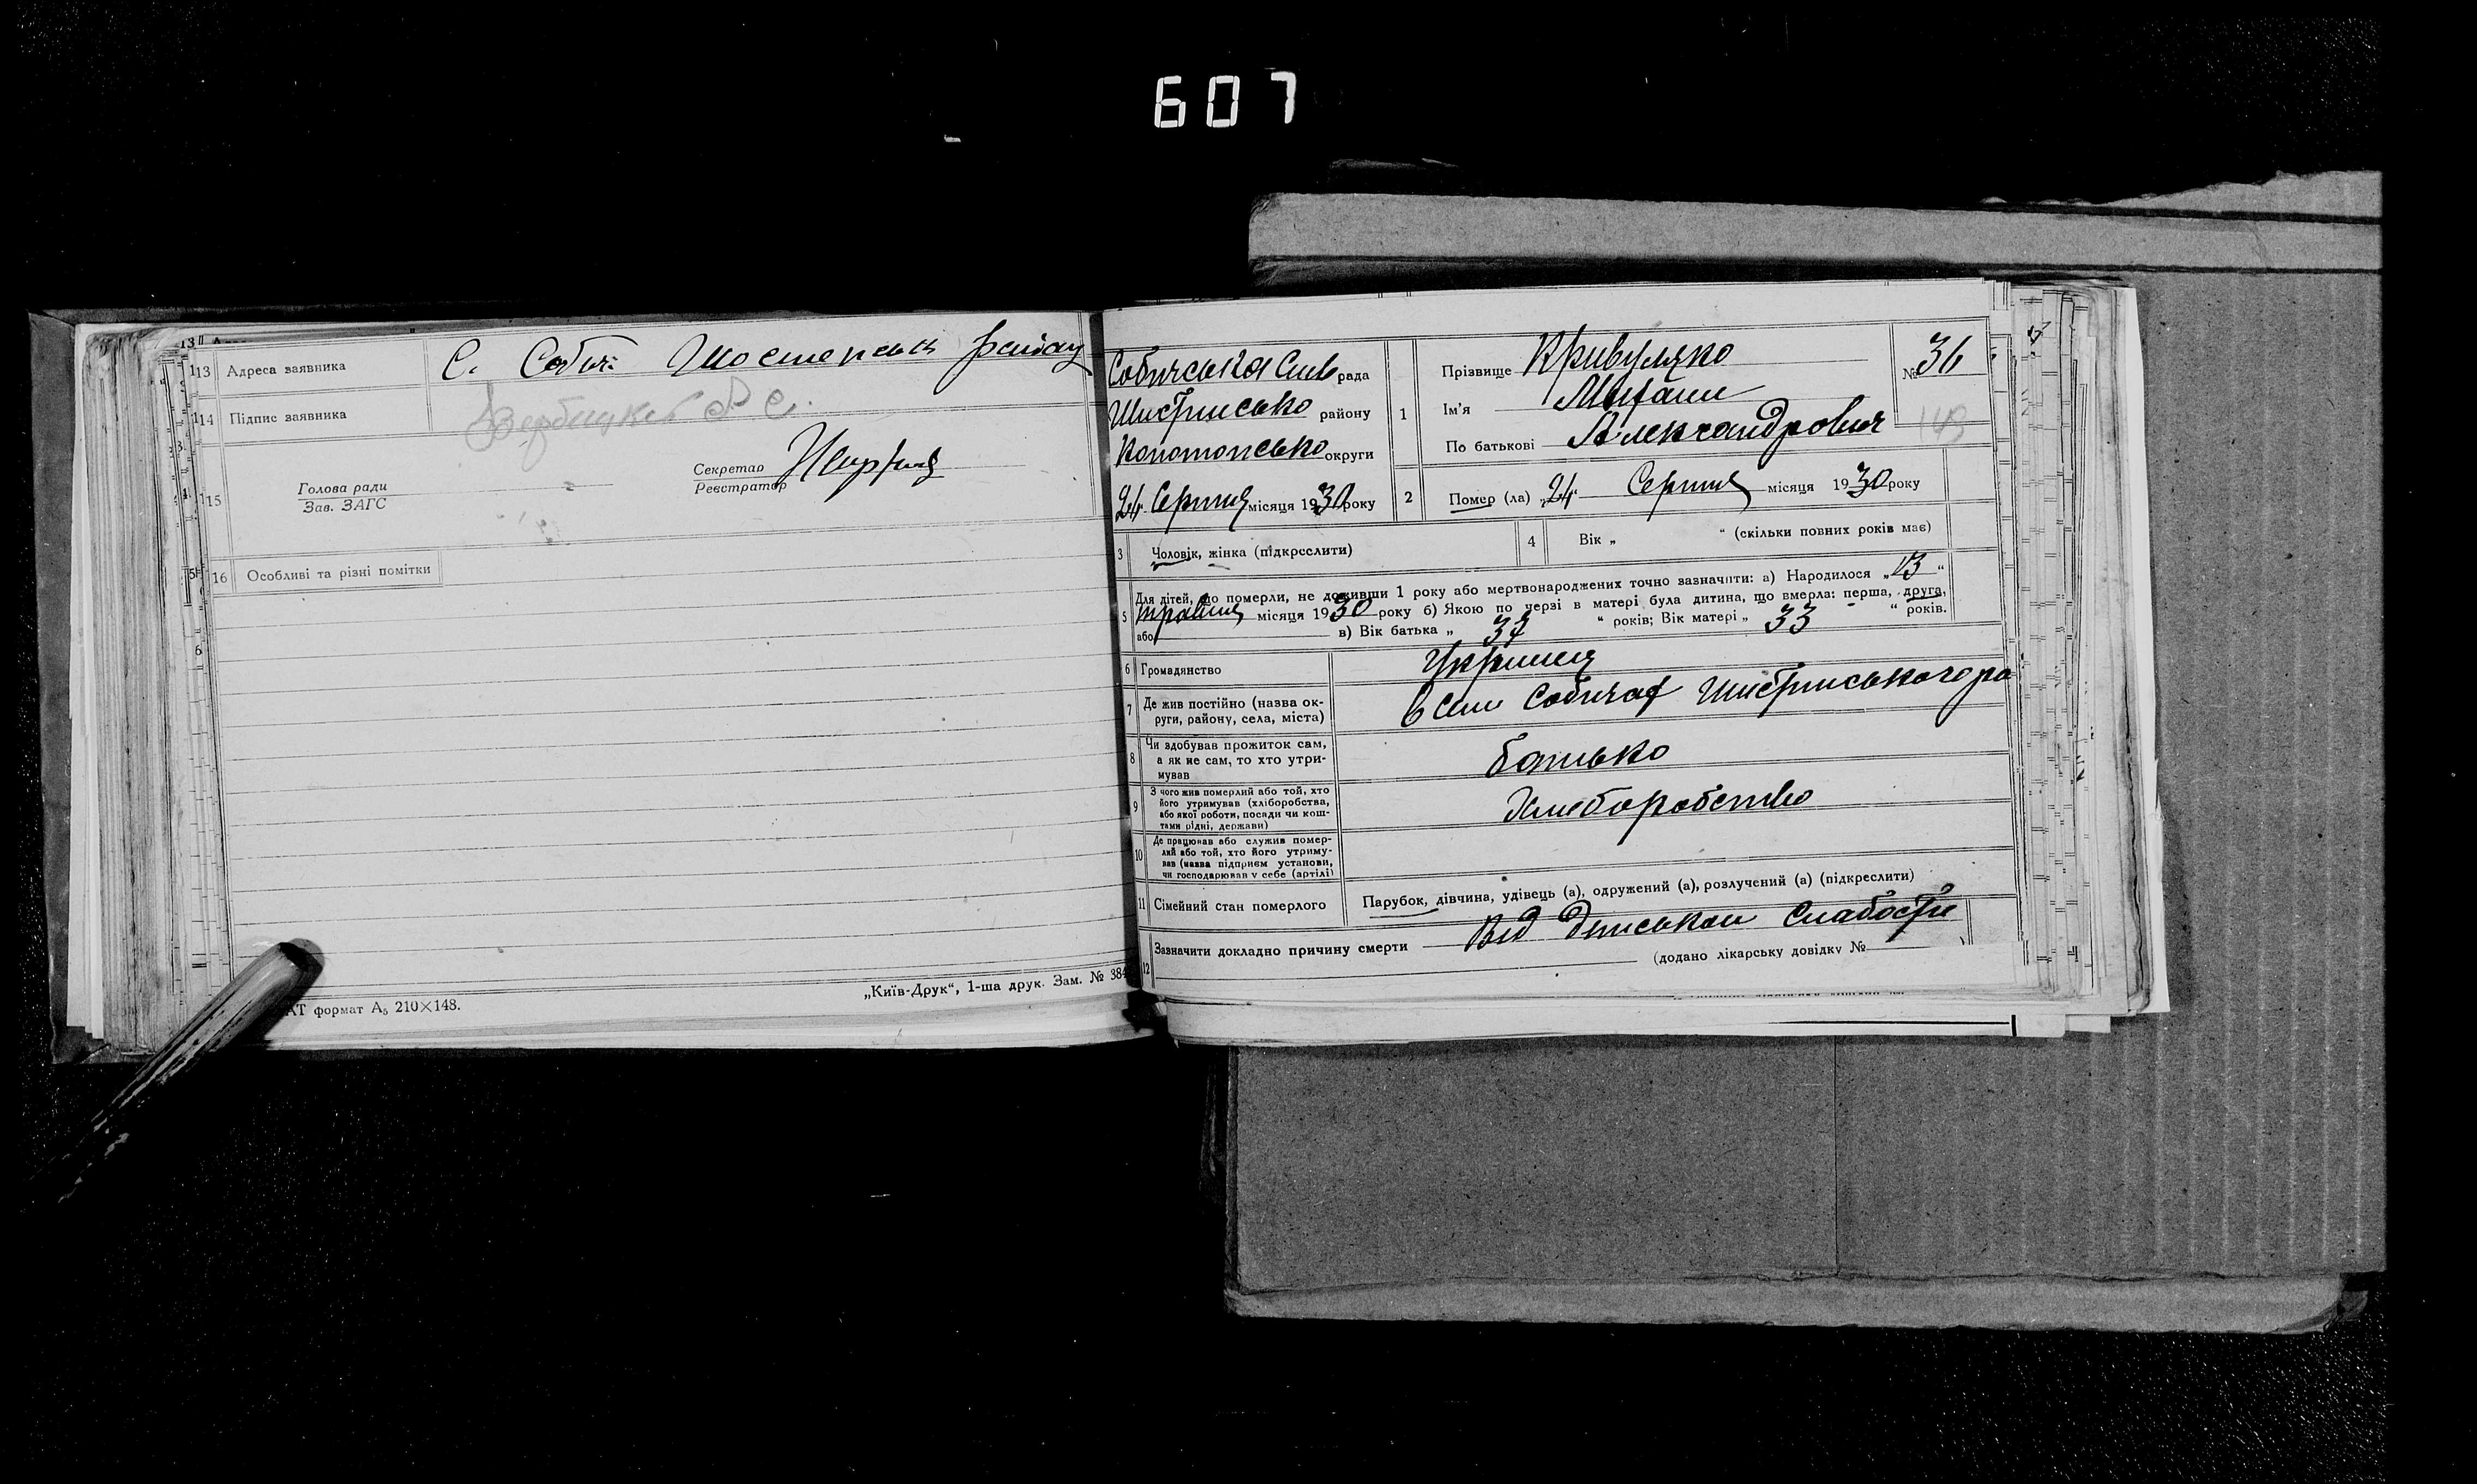 607
13 Адреса заявника С. Собич Шостенськ району
14 Підпис заявника
15 Голова ради
Зав. ЗАГС
Секретар
Реєстратор
16 Особливі та різні помітки
АТ формат А₅ 210×148.
„Київ-Друк“, 1-ша друк. Зам. № 384
Собичська Сільрада
району
Конотопсько округи
24 Серпня місяця 1930 року
1 Прізвище Кривуляко
Ім'я
По батькові Александрович
№ 36
143
2 Помер (ла) „24“ Серпня місяця 1930 року
3 Чоловік, жінка (підкреслити)
4 Вік „ “ (скільки повних років має)
5 Для дітей, що померли, не доживши 1 року або мертвонароджених точно зазначити: а) Народилося „13“
травня місяця 1930 року б) Якою по черзі в матері була дитина, що вмерла: перша, друга,
або в) Вік батька „ 37 “ років; Вік матері „ 33 “ років.
6 Громадянство
7 Де жив постійно (назва ок-
руги, району, села, міста)
в Селі Собичах
8 Чи здобував прожиток сам,
а як не сам, то хто утри-
мував
батько
9 З чого жив померлий або той, хто
його утримував (хліборобства,
або якої роботи, посади чи кош-
тами рідні, держави)
Хлиборобство
10 Де працював або служив помер-
лий або той, хто його утриму-
вав (назва підприєм установи,
чи господарював у себе (артілі)
11 Сімейний стан померлого Парубок, дівчина, удівець (а), одружений (а), розлучений (а) (підкреслити)
12 Зазначити докладно причину смерти Від Дитськои Слабости
(додано лікарську довідку № )